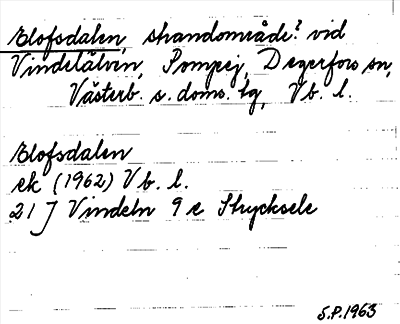 Elofsdalen, strandområde? vid
Vindelälven, Pompej, Degerfors sn,
Västerb. s. doms. tg, Vb. l.
Elofsdalen
ek (1962) Vb. l.
21 J Vindeln 9 e Strycksele
S.P. 1963